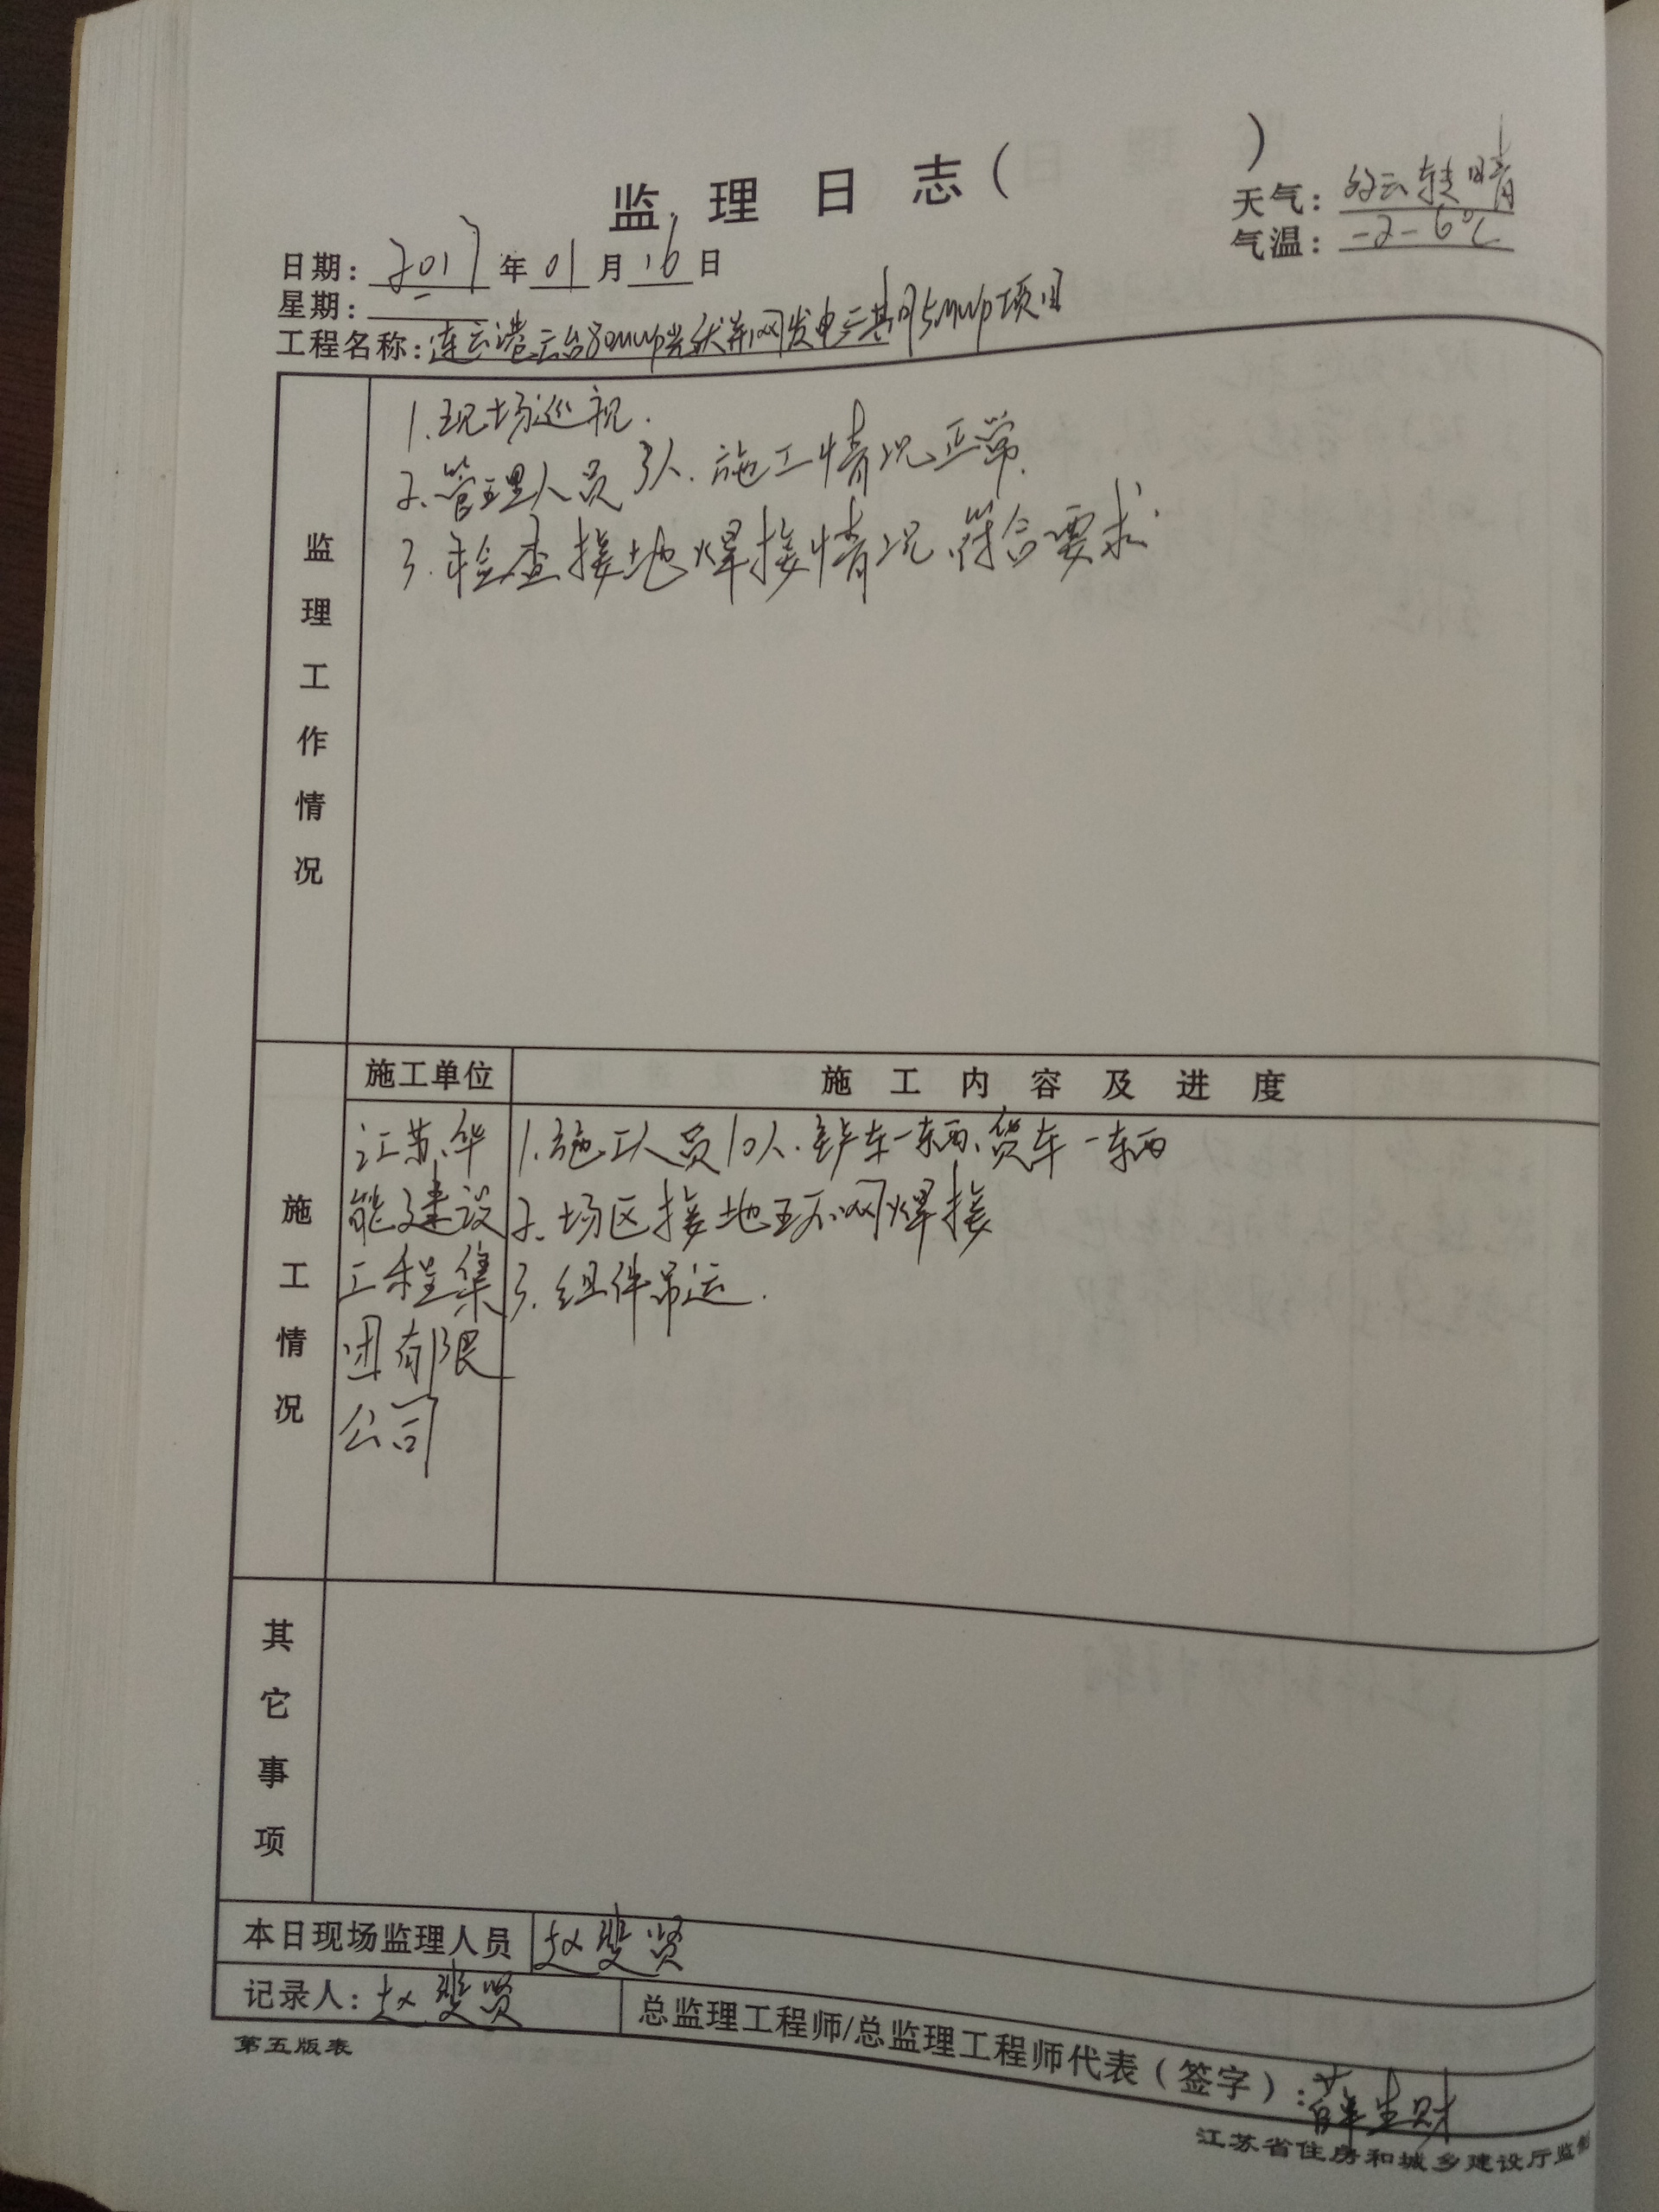 监 理 日 志（ ）
天气：多云转晴
气温：-2-6℃
日期：2017年01月16日
星期：一
工程名称：连云港云台80MWp光伏并网发电三期75MWp项目
监理工作情况
1.现场巡视.
2.管理人员3人.施工情况正常.
3.检查接地焊接情况.符合要求
施工情况
施工单位 施 工 内 容 及 进 度
江苏华 1.施工人员10人.铲车一辆、货车一辆
能建设 2.场区接地环网焊接
工程集 3.组件吊运.
团有限
公司
其它事项
本日现场监理人员 赵斐贤
记录人：赵斐贤 总监理工程师/总监理工程师代表（签字）：薛生财
第五版表
江苏省住房和城乡建设厅监